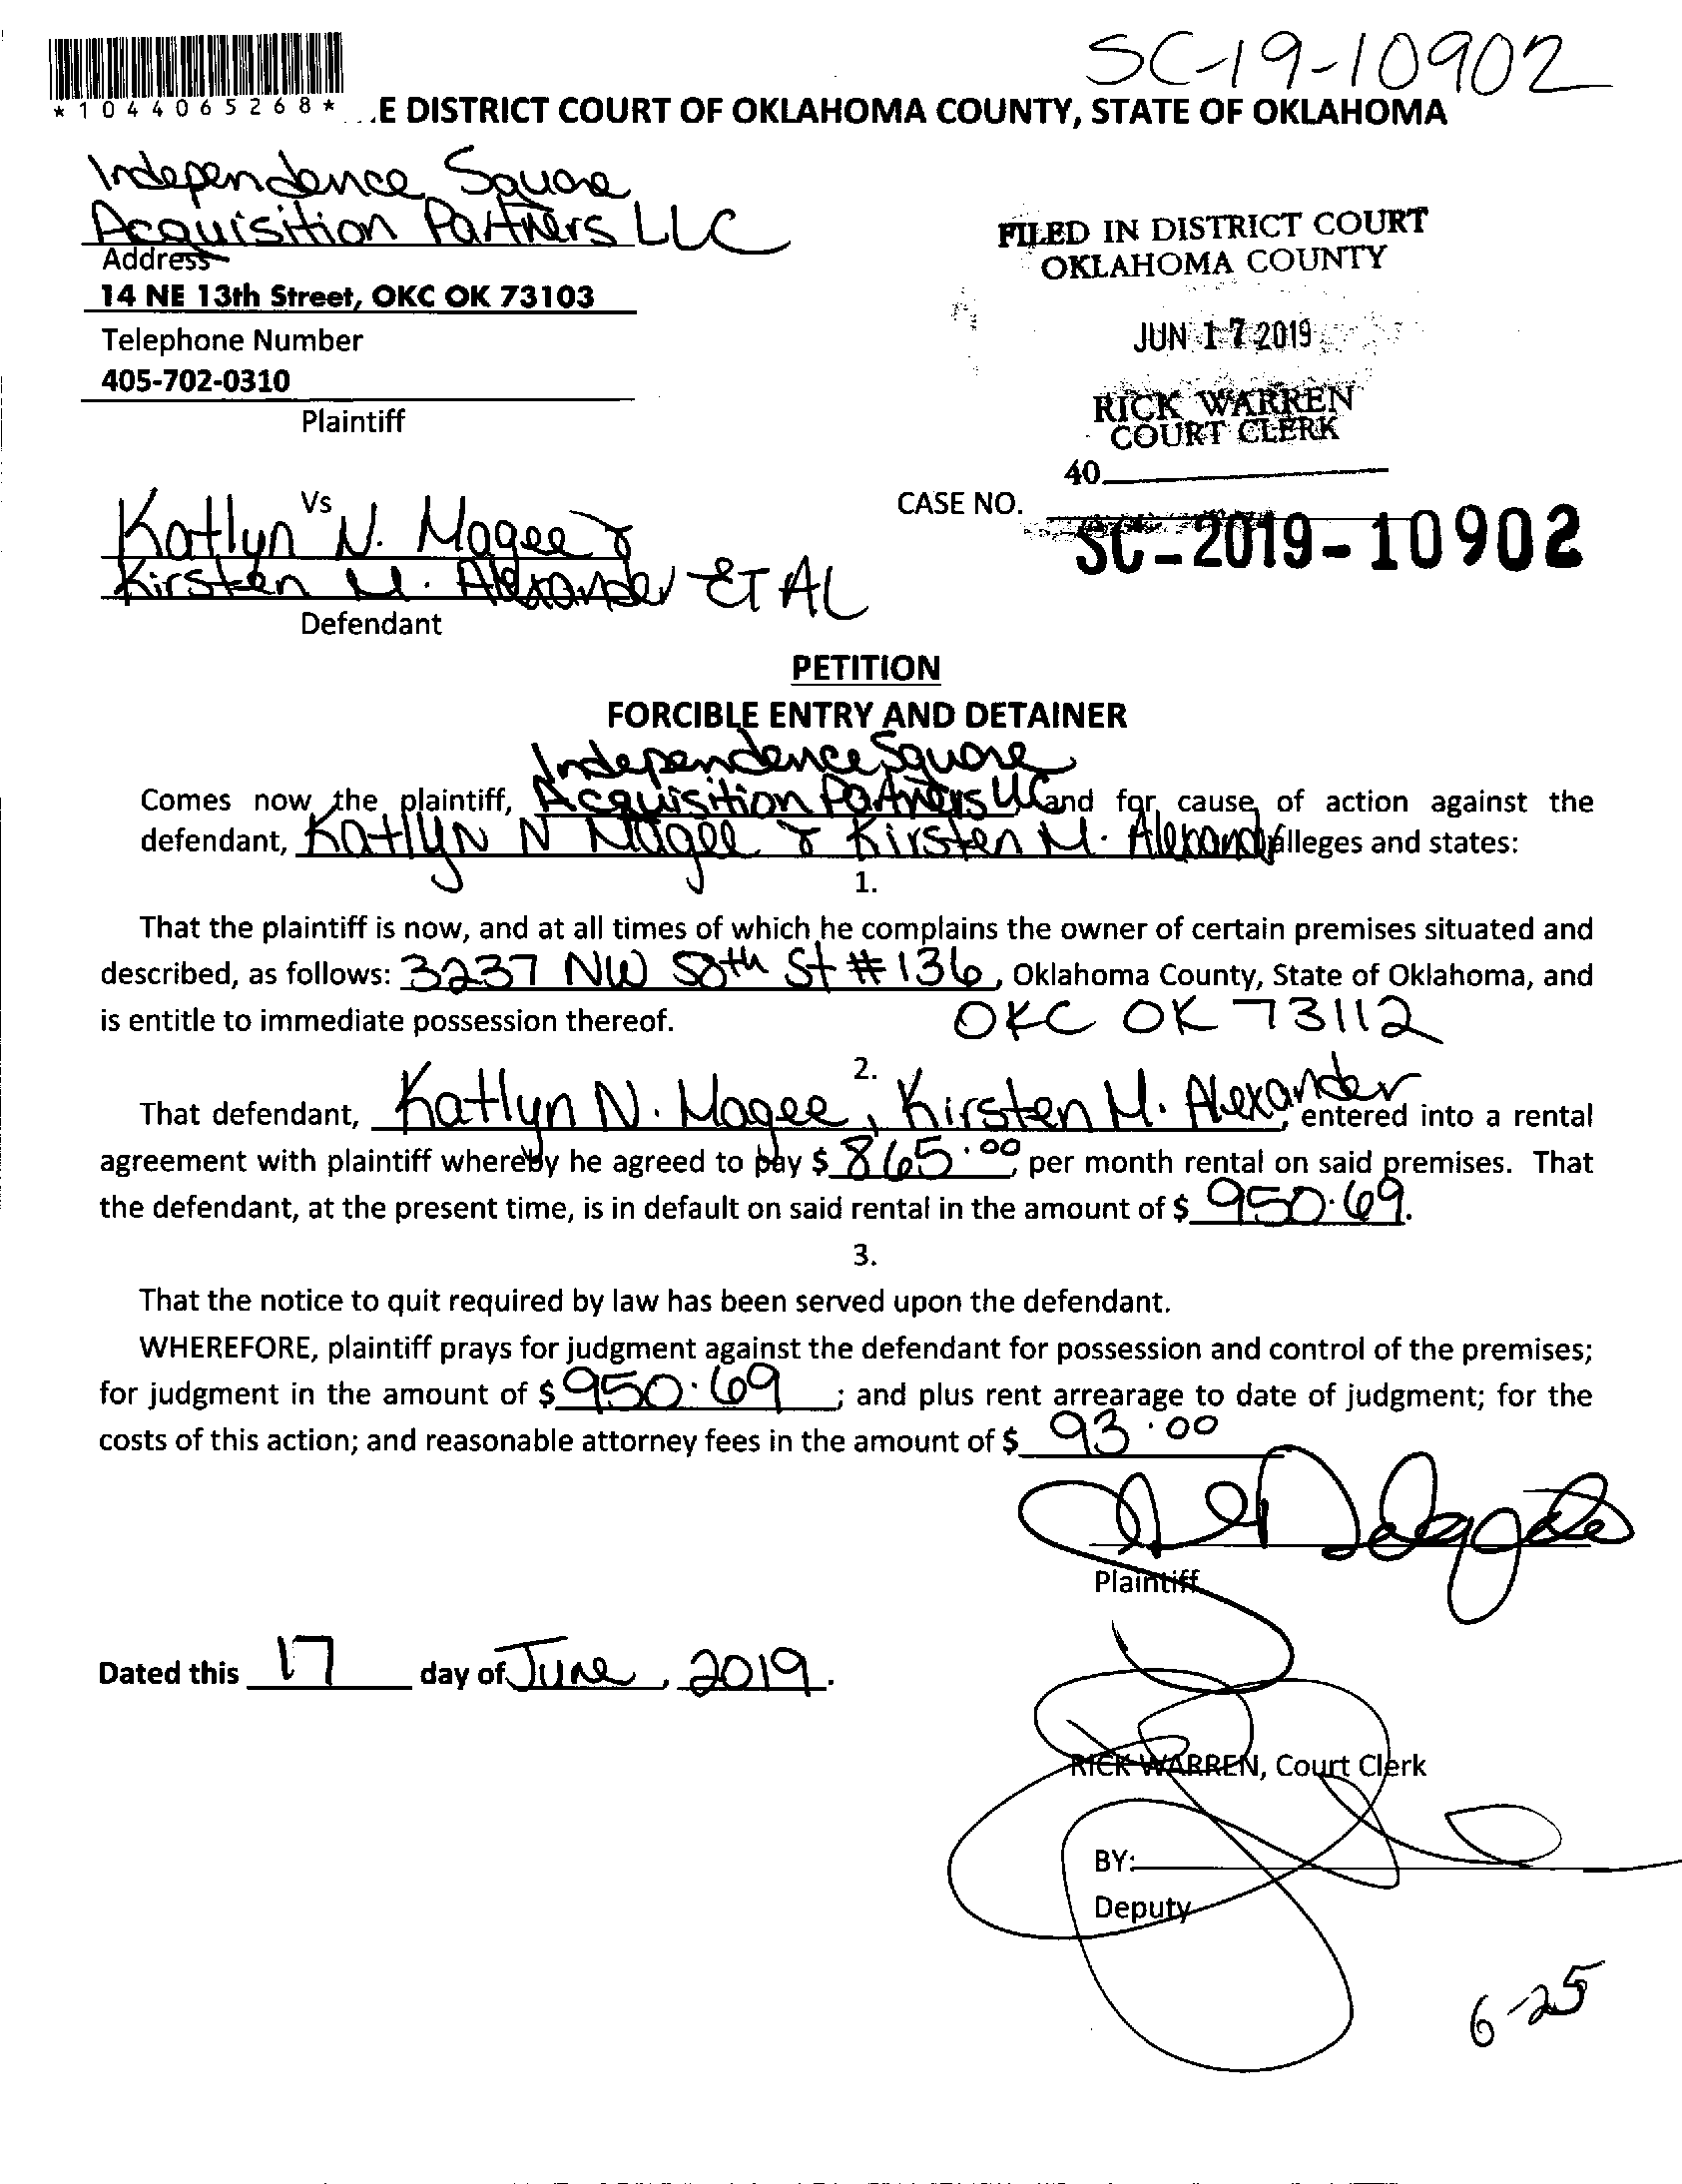 SC-19-10902
*1044065268*
E DISTRICT COURT OF OKLAHOMA COUNTY, STATE OF OKLAHOMA
Independence Square
Acquisition Partners LLC
Address
14 NE 13th Street, OKC OK 73103
Telephone Number
405-702-0310
Plaintiff
FILED IN DISTRICT COURT
OKLAHOMA COUNTY
JUN 17 2019
RICK WARREN
COURT CLERK
40
Vs
CASE NO.
SC-2019-10902
Katlyn N. Magee &
Kirsten M. Alexander ET AL
Defendant
PETITION
FORCIBLE ENTRY AND DETAINER
Independence Square
Comes now the plaintiff, Acquisition Partners LLC and for cause of action against the
defendant, Katlyn N Magee & Kirsten M. Alexand alleges and states:
1.
That the plaintiff is now, and at all times of which he complains the owner of certain premises situated and
described, as follows: 3237 NW 50th St #136, Oklahoma County, State of Oklahoma, and
is entitle to immediate possession thereof. OKC OK 73112
2.
That defendant, Katlyn N. Magee, Kirsten M. Alexander, entered into a rental
agreement with plaintiff whereby he agreed to pay $ 865.00, per month rental on said premises. That
the defendant, at the present time, is in default on said rental in the amount of $ 950.69.
3.
That the notice to quit required by law has been served upon the defendant.
WHEREFORE, plaintiff prays for judgment against the defendant for possession and control of the premises;
for judgment in the amount of $ 950.69; and plus rent arrearage to date of judgment; for the
costs of this action; and reasonable attorney fees in the amount of $ 93.00
Plaintiff
Dated this 17 day of June, 2019.
RICK WARREN, Court Clerk
BY:
Deputy
6-25